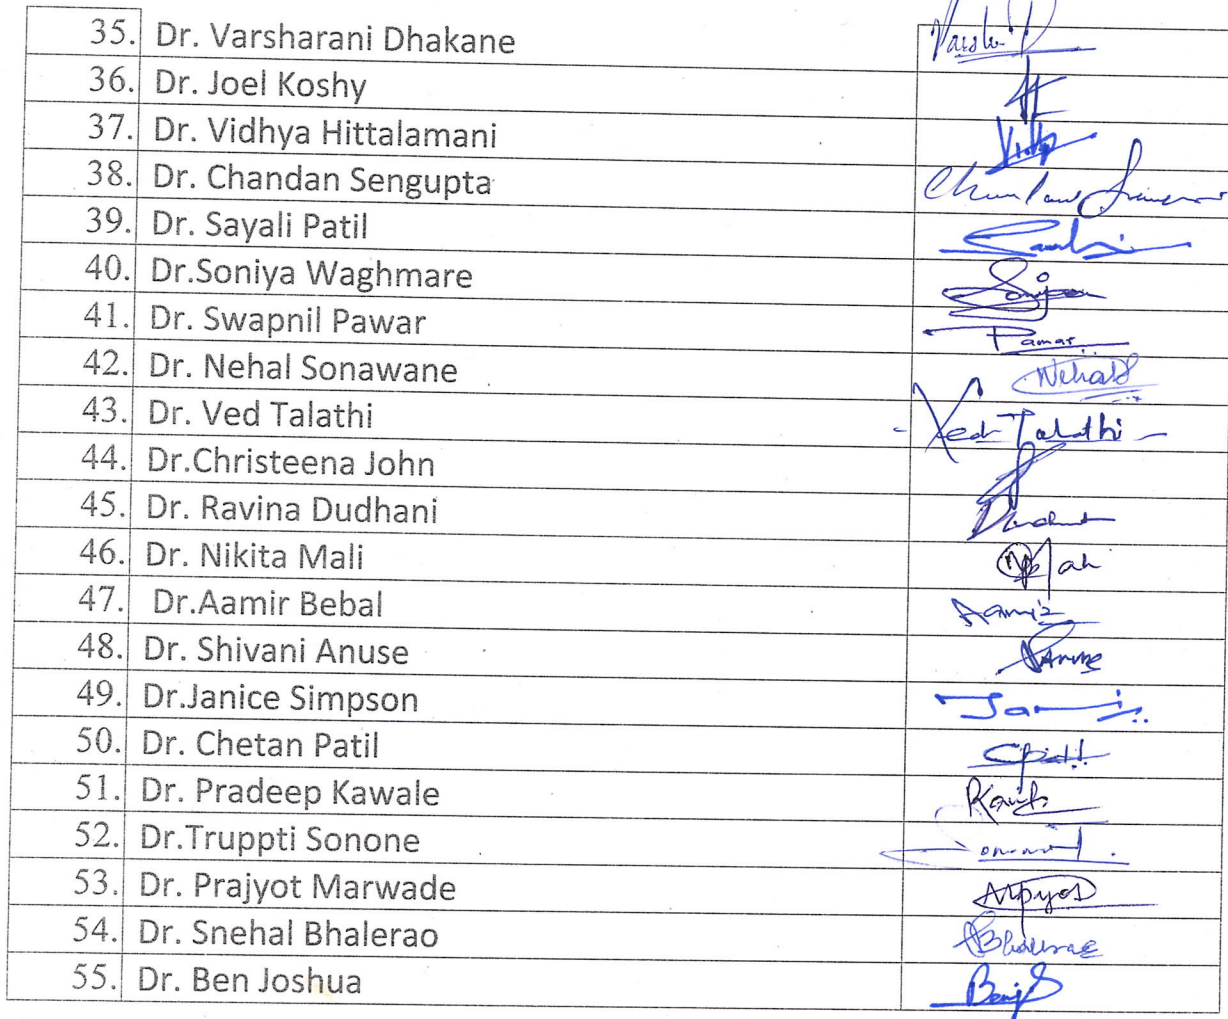 35. Dr. Varsharani Dhakane Varsha
36. Dr. Joel Koshy
37. Dr. Vidhya Hittalamani
38. Dr. Chandan Sengupta
39. Dr. Sayali Patil
40. Dr.Soniya Waghmare
41. Dr. Swapnil Pawar
42. Dr. Nehal Sonawane NehalS
43. Dr. Ved Talathi Ved Talathi
44. Dr.Christeena John
45. Dr. Ravina Dudhani
46. Dr. Nikita Mali
47. Dr.Aamir Bebal Aamir
48. Dr. Shivani Anuse SAnuse
49. Dr.Janice Simpson
50. Dr. Chetan Patil
51. Dr. Pradeep Kawale
52. Dr.Truppti Sonone
53. Dr. Prajyot Marwade
54. Dr. Snehal Bhalerao SBhalerao
55. Dr. Ben Joshua